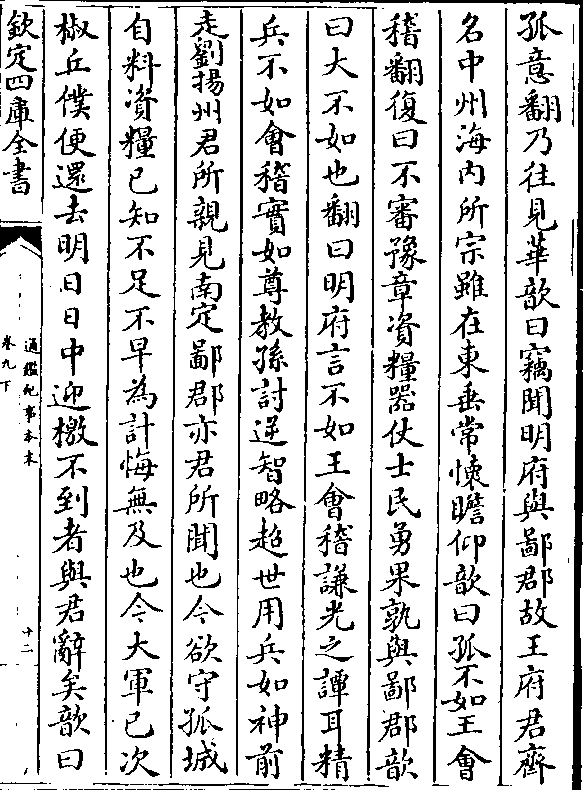 孤意翻乃往見華歆曰竊聞明府與鄙郡故王府君齊
名中州海内所宗雖在東垂常懷瞻仰歆曰孤不如王會
稽翻復曰不審豫章資糧器仗士民勇果孰與鄙郡歆
曰大不如也翻曰明府言不如王會稽謙光之譚耳精
兵不如會稽實如尊教孫討逆智略超世用兵如神前
走劉揚州君所親見南定鄙郡亦君所聞也今欲守孤城
自料資糧已知不足不早為計悔無及也今大軍已次
椒丘僕便還去明日日中迎檄不到者與君辭矣歆曰
欽定四庫全書
通鑑紀事本末
卷九下
十二